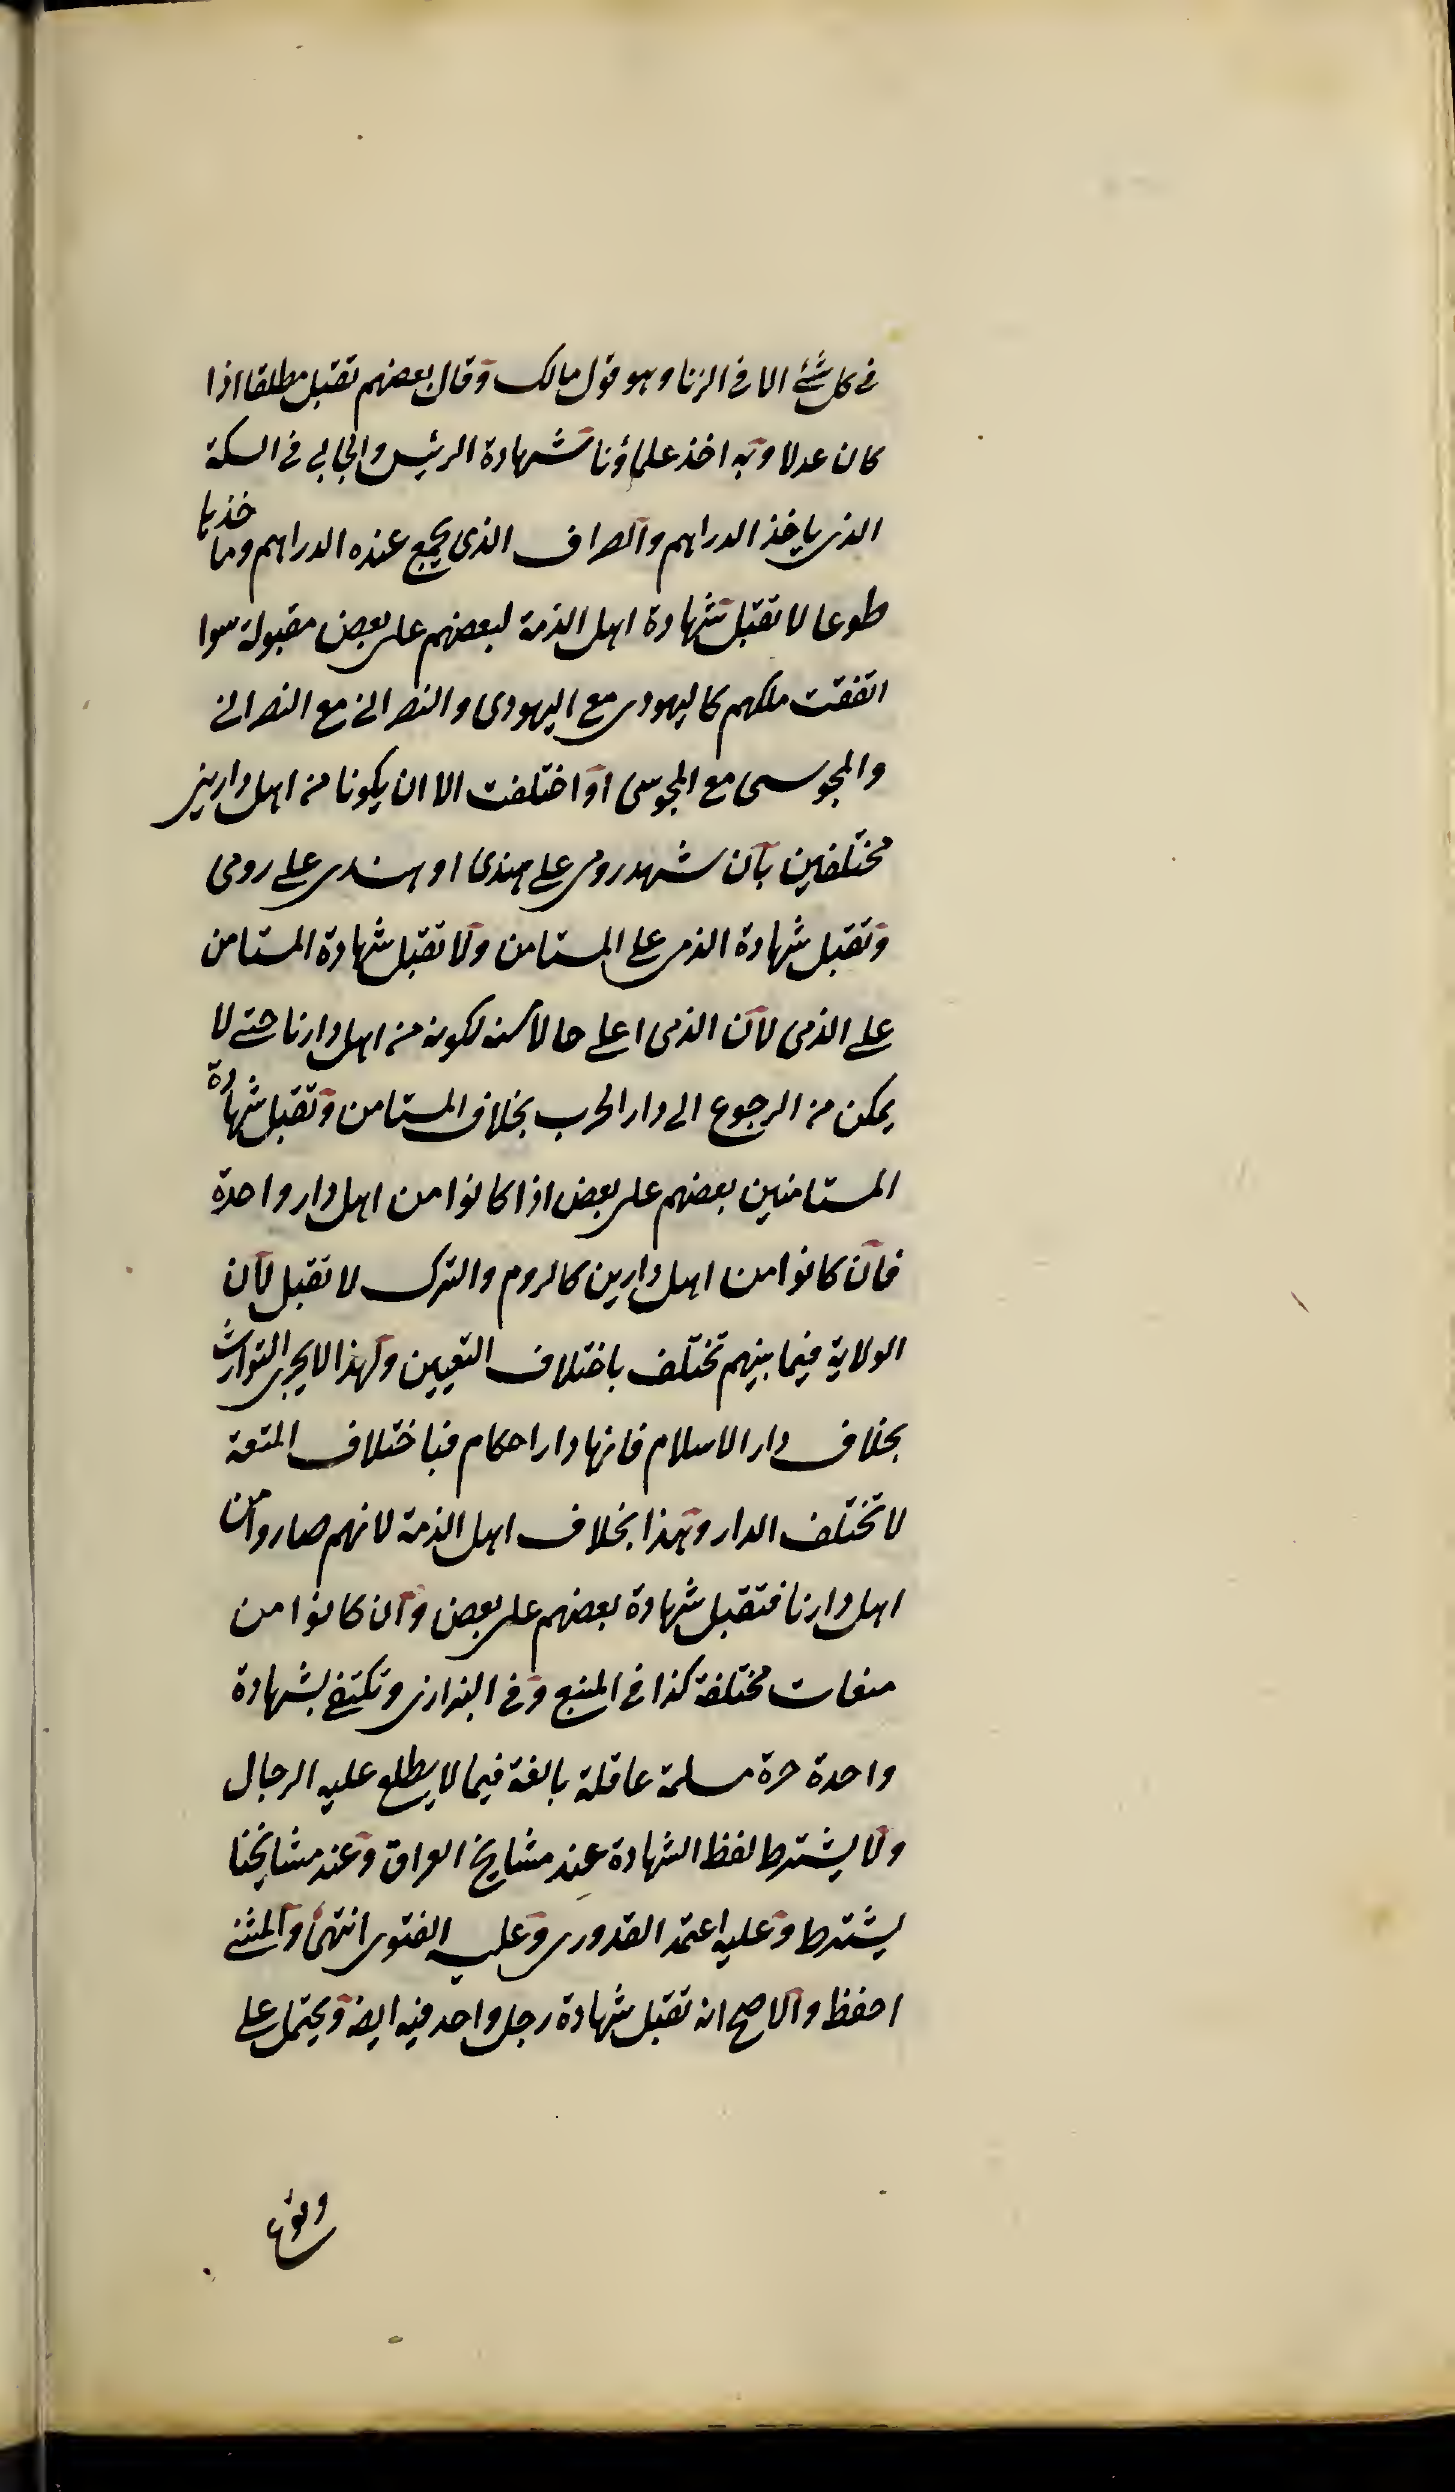 في كل شئ الا في الزنا وهو قول مالك وقال بعضهم تقبل مطلقا اذا
كان عدلا وبه اخذ علماؤنا شهادة الرئيس والجابي في السكة
الذي ياخذ الدراهم والصراف الذي يجمع عنده الدراهم وما خذها
طوعا لا تقبل شهادة اهل الذمة لبعضهم على بعض مقبولة سوا
اتفقت مللهم كاليهودي مع اليهودي والنصراني مع النصراني
والمجوسي مع المجوسي او اختلفت الا ان يكونا من اهل دارين
مختلفين بان شهد رومي على هندي او هندي على رومي
وتقبل شهادة الذمي على المستامن ولا تقبل شهادة المستامن
على الذمي لان الذمي اعلى حالا منه لكونه من اهل دارنا حتى لا
يمكن من الرجوع الى دار الحرب بخلاف المستامن وتقبل شهادة
المستامنين بعضهم على بعض اذا كانوا من اهل دار واحدة
فان كانوا من اهل دارين كالروم والترك لا تقبل لان
الولاية فيما بينهم تختلف باختلاف التعيين ولهذا لا يجرى التوارث
بخلاف دار الاسلام فانها دار احكام فباختلاف المنعة
لا تختلف الدار وهذا بخلاف اهل الذمة لانهم صاروا من
اهل دارنا فتقبل شهادة بعضهم على بعض وان كانوا من
منعات مختلفة كذا في المنبع وفي البزازي وتكتفى بشهادة
واحدة حرة مسلمة عاقلة بالغة فيما لا يطلع عليه الرجال
ولا يشترط لفظ الشهادة عند مشايخ العراق وعند مشايخنا
يشترط وعليه اعتمد القدوري وعليه الفتوى انتهى والمثنى
احفظ والاصح انه تقبل شهادة رجل واحد فيه ايضا ويحتمل على